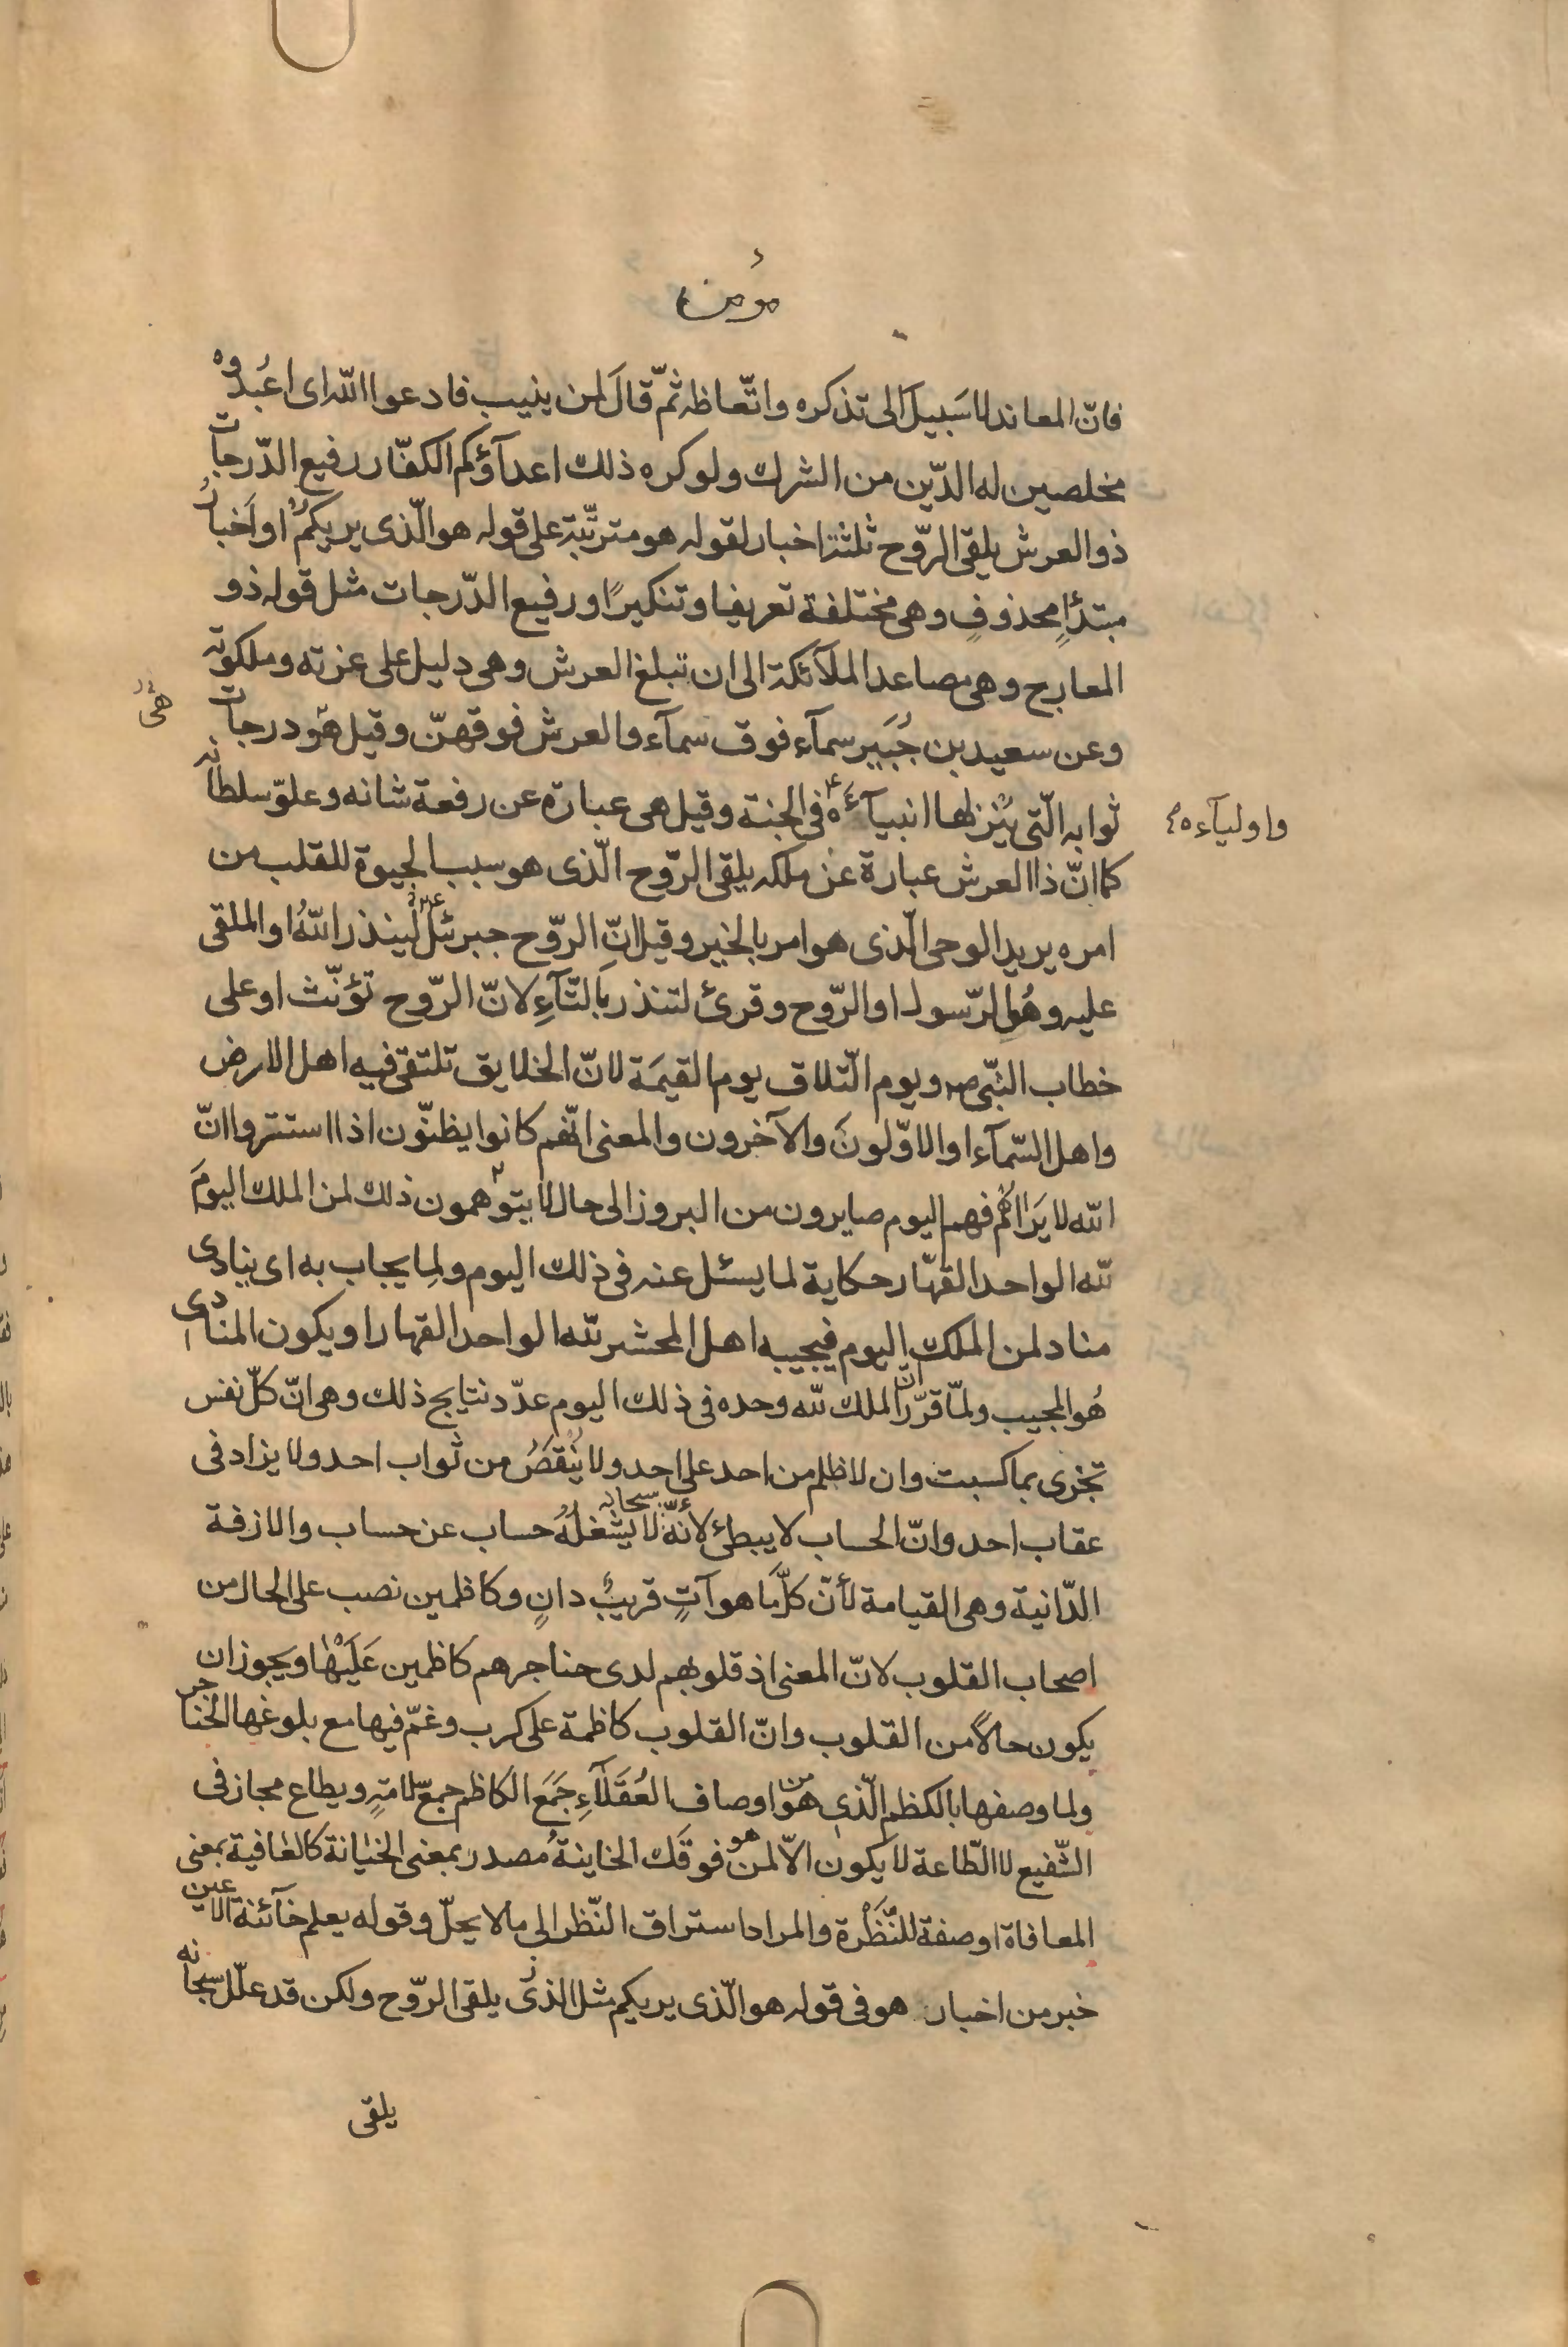 مؤمن
فانّ المعاند لا سَبيلَ الى تذكره واتّعاظه ثمّ قالَ لمن ينيب فادعوا اللّه اى اعبُدوه
مخلصين له الدّين من الشرك ولو كره ذلك اعدآؤكم الكفّار رفيع الدّرجات
ذو العرش يلقى الرّوح ثلثة اخبار لقوله هو مترتّبة على قوله هو الّذى يريكم او اَخبارُ
مبتدإٍ محذوفٍ وهى مختلفة تعريفا وتنكيرًا ورفيع الدّرجات مثل قوله ذو
المعارج وهى مصاعد الملآئكة الى ان تبلغ العرش وهى دليل على عزته وملكوته
وعن سعيد بن جُبَير سمآء فوق سمآء والعرش فوقهنّ وقيل هو درجات
هى
ثوابه الّتى يُنزلها انبيآءه ع فى الجنة وقيل هى عبارة عن رفعة شانه وعلوّ سلطانه
واوليآءه
كما انّ ذا العرش عبارة عن ملكه يلقى الرّوح الّذى هو سبب الحيوة للقلب من
امره يريد الوحى الّذى هو امر بالخير وقيل انّ الرّوح جبرئيل ع لينذر اللّهُ او الملقى
عليه وهُو الرّسول او الرّوح وقرئ لتنذر بالتّآءِ لانّ الرّوح تؤنّث او على
خطاب النّبىّ ص ويوم التّلاق يوم القيمَة لانّ الخلايق تلتقى فيه اهل الارض
واهل السّمآء او الاوّلونَ والآخرون والمعنى انّهم كانوا يظنّون اذا استتروا انّ
اللّه لا يَراهُم فهم اليوم صايرون من البروز الى حال لا يتوهمون ذلك لمن الملك اليومَ
للّه الواحد القهّار حكاية لما يسئل عنه فى ذلك اليوم ولِما يجاب به اى ينادى
مناد لمن الملك اليوم فيجيبه اهل المحشر للّه الواحد القهار او يكون المنادى
هُو المجيب ولمّا قرّر انّ الملك للّه وحده فى ذلك اليوم عدّد نتايج ذلك وهى انّ كلّ نفس
تجزى بما كسبت وان لا ظلم من احد على احد ولا يُنقَصُ من ثواب احد ولا يزاد فى
عقاب احد وانّ الحساب لا يبطئ لأنّه سبحانه لا يشغلُهُ حساب عن حساب والازفة
الدّانية وهى القيامة لأنّ كلّ ما هو آتٍ قريبٌ دانٍ وكاظمين نصب على الحال من
اصحاب القلوب لانّ المعنى اذ قلوبهم لدى حناجرهم كاظمين عَلَيْها ويجوز ان
يكون حالاً من القلوب وانّ القلوب كاظمة على كرب وغمّ فيها مع بلوغها الحناجر
ولما وصفها بالكظم الّذى هو من اوصاف العُقَلآءِ جَمَعَ الكاظم جمعَ سلامةٍ ويطاع مجاز فى
الشّفيع لا الطّاعة لا يكون الّا لمن هو فوقَك الخاينةُ مصدر بمعنى الخيانة كالعافية بمعنى
المعافاة او صفة للنَّظْرَة والمراد استراق النّظر الى ما لا يحلّ وقوله يعلم خآئنة الاعين
خبر من اخبار هو فى قوله هو الّذى يريكم مثل الذى يلقى الرّوح ولكن قد علّل سبحانه
يلقى